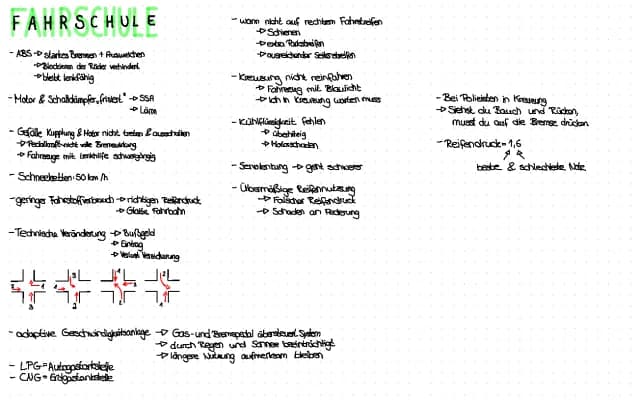 FAHRSCHULE
- ABS → starkes Bremsen + Ausweichen
→ Blockieren der Räder verhindert
→ bleibt lenkfähig
- Motor & Schalldämpfer „frisiert" → SSA
→ Lärm
- Gefälle Kupplung & Motor nicht treten & ausschalten
→ Pedalkraft-nicht volle Bremswirkung
→ Fahrzeuge mit Lenkhilfe schwergängig
- Schneeketten: 50 km/h
- geringer Fahrstoffverbrauch → richtigen Reifendruck
→ Glatte Fahrbahn
- Technische Veränderung → Bußgeld
→ Eintrag
→ Verlust Versicherung
2 1 3
3 1 2
1 2 3
2 1
- adaptive Geschwindigkeitsanlage → Gas- und Bremspedal übersteuert System
→ durch Regen und Sonne beeinträchtigt
→ längere Nutzung aufmerksam bleiben
- LPG = Autogastankstelle
- CNG = Erdgastankstelle
- wann nicht auf rechtem Fahrstreifen
→ Schienen
→ extra Parkstreifen
→ ausreichender Seitenstreifen
- Kreuzung nicht reinfahren
→ Fahrzeug mit Blaulicht
→ Ich in Kreuzung warten muss
- Kühlflüssigkeit fehlen
→ überhitzig
→ Motorschaden
- Servolenkung → geht schwerer
- Übermäßige Reifennutzung
→ Falscher Reifendruck
→ Schaden an Federung
- Bei Polizisten in Kreuzung
→ Siehst du Bauch und Rücken,
musst du auf die Bremse drücken.
- Reifendruck = 1,6
beste & schlechteste Note